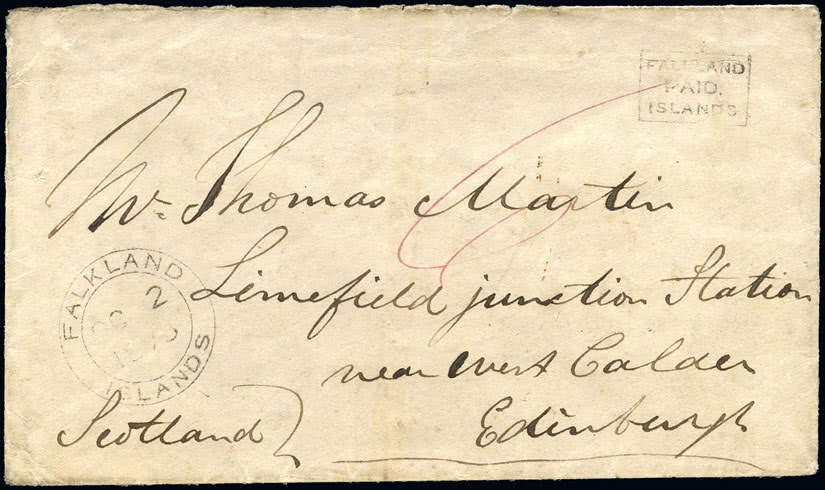 FALKLAND
PAID.
ISLANDS
Mr. Thomas Martin
Limefield junction Station
near West Calder
Edinburgh
Scotland
FALKLAND
2
ISLANDS